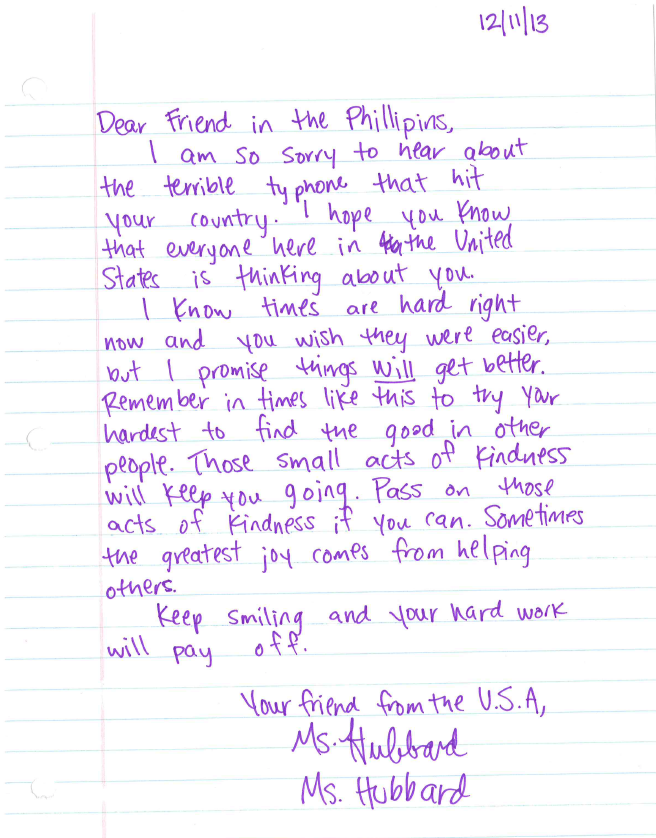 12/11/13
Dear Friend in the Phillipins,
I am so sorry to hear about
the terrible typhone that hit
your country. I hope you know
that everyone here in the United
States is thinking about you.
I know times are hard right
now and you wish they were easier,
but I promise things will get better.
Remember in times like this to try your
hardest to find the good in other
people. Those small acts of kindness
will keep you going. Pass on those
acts of kindness if you can. Sometimes
the greatest joy comes from helping
others.
Keep smiling and your hard work
will pay off.
Your friend from the U.S.A,
Ms. Hubbard
Ms. Hubbard